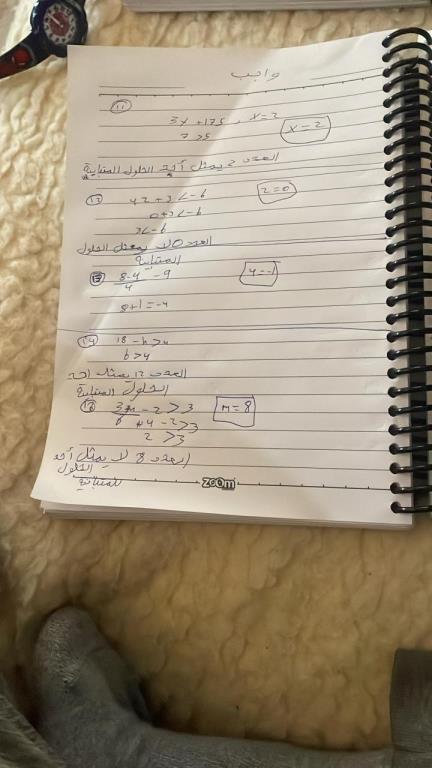 واجب
11
3x + 1 > 5 , x = 2
x = 2
7 > 5
العدد 2 يمثل أحد الحلول للمتباينة
12
4z + 3 < -6
z = 0
0 + 3 < -6
3 < -6
العدد 0 لا يمثل الحلول
المتباينة
-9
y = -1
8 + 1 = -4
14
18 - n > 4
6 > 4
العدد 12 يمثل احد
الحلول المتباينة
- 2 > 3
m = 8
- 2 > 3
2 > 3
العدد 8 لا يمثل أحد
الحلول
للمتباينة
zoom